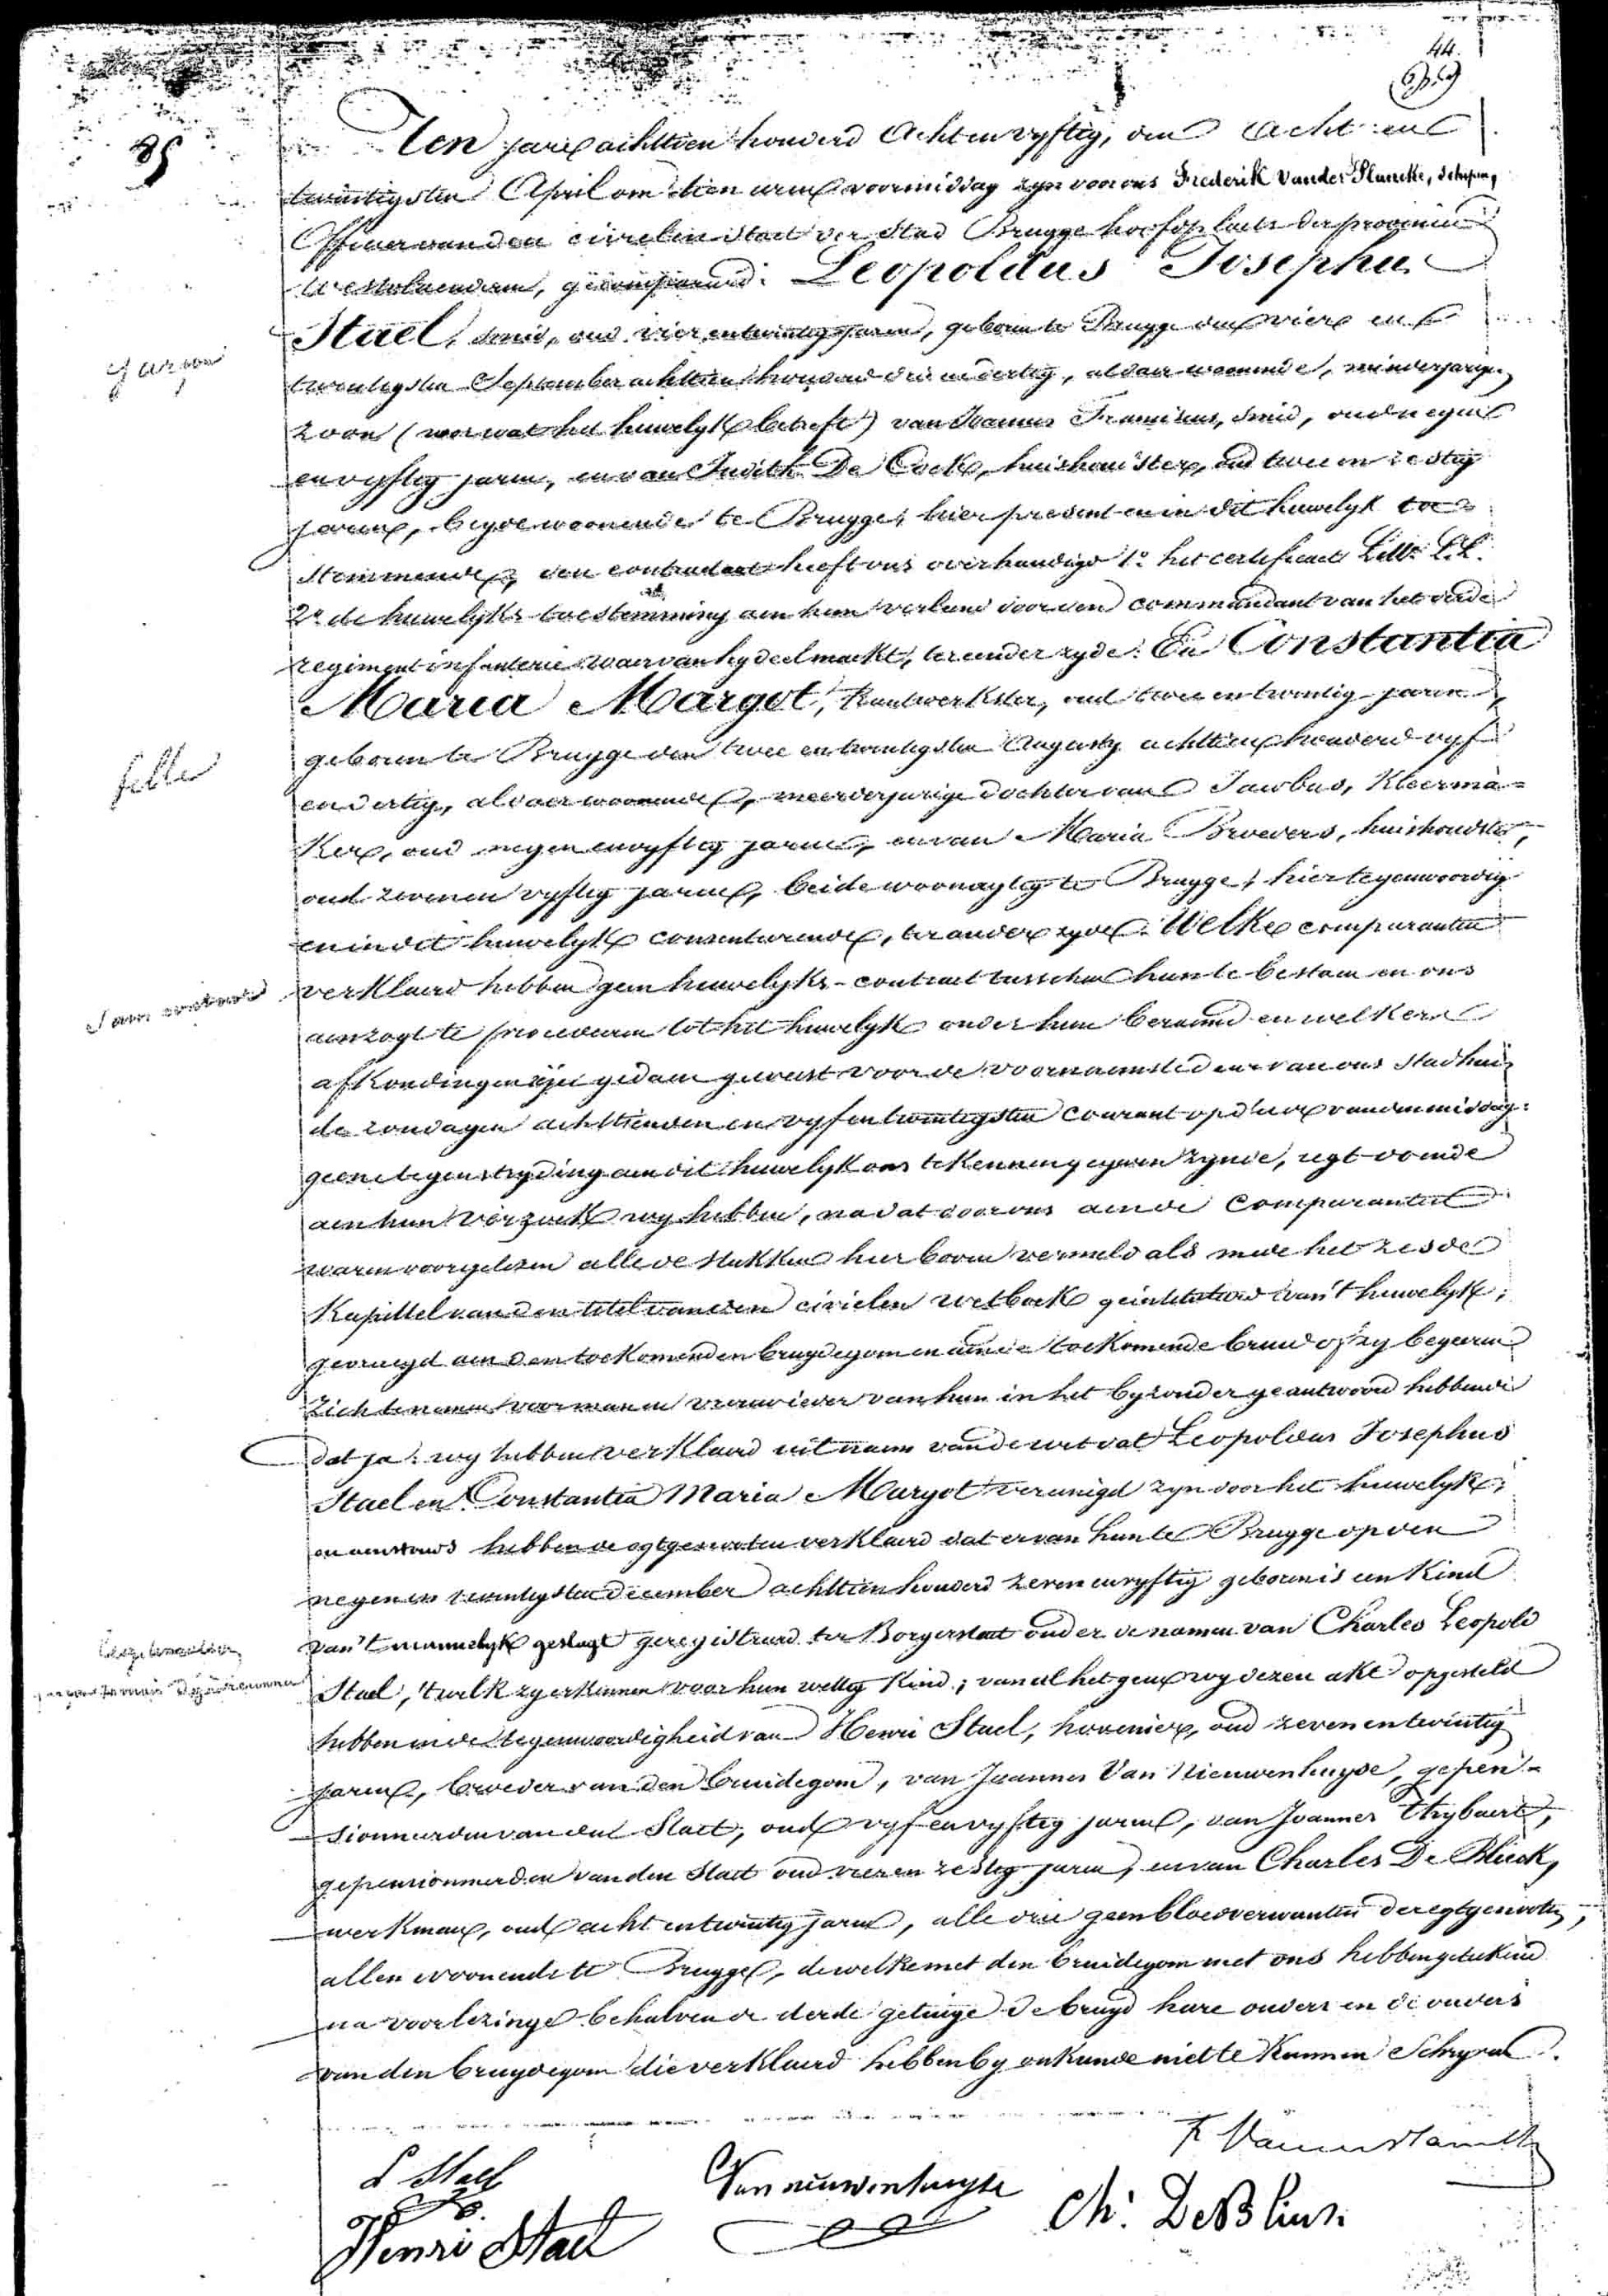 44.
85
Ten jare achttien honderd Acht en vyftig, den Acht en
twintigsten April om tien uren voormiddag zyn voor ons Frederik Vander Plancke, schepen,
Officier van den civielen staet der Stad Brugge hoofdplaets der provincie
Westvlaenderen, gecompareerd: Leopoldus Josephus
Stael, smid, oud vier en twintig jaren, geboren te Brugge den vier en
garçon
twintigsten September achttien honderd drie en dertig, aldaer woonende, minderjarige
zoon (voor wat het huwelyk betreft) van Joannes Franciscus, smid, oud negen
en vyftig jaren, en van Judith De Cock, huishoudster, oud twee en zestig
jaren, beyde woonende te Brugge, hier present en in dit huwelyk toe
stemmende, den contractant heeft ons overhandigd 1º het certificaet Littr L.L.
2º de huwelyks toestemming aen hem verleend door den commandant van het derde
regiment infanterie waervan hy deel maekt, ter eender zyde. En Constantia
Maria Margot, kantwerkster, oud twee en twintig jaren,
geboren te Brugge den twee en twintigsten Augusty achttien honderd vyf
fille
en dertig, aldaer woonende, meerderjarige dochter van Jacobus, kleerma-
ker, oud negen en vyftig jaren, en van Maria Broevers, huishoudster,
oud zeven en vyftig jaren, beide woonagtig te Brugge, hier tegenwoordig
en in dit huwelyk consenterende, ter ander zyde. Welke comparanten
Sans contract
verklaerd hebben geen huwelyks-contract tusschen hun te bestaen en ons
aenzogt te procederen tot het huwelyk onder hun beraemd en welkers
afkondingen zyn gedaen geweest voor de voornaemste deur van ons Stadhuis
de zondagen achttienden en vyf en twintigsten courant op d'ure van den middag:
geene tegenstryding aen dit huwelyk ons te kennen gegeven zynde, regt doende
aen hun verzoek wy hebben, nadat door ons aen de comparanten
waren voorgelezen alle de stukken hier boven vermeld als mede het zesde
Kapittel van den titel van den civielen wetboek geintituleerd van 't huwelyk;
gevraegd aen den toekomenden bruydegom en aen de toekomende bruid of zy begeeren
zich te nemen voor man en vrouw ieder van hun in het byzonder geantwoord hebbende
dat ja: wy hebben verklaerd uit naem van de wet dat Leopoldus Josephus
Stael en Constantia Maria Margot vereenigd zyn door het huwelyk;
en aenstonds hebben de egtgenooten verklaerd dat er van hun te Brugge op den
negen en twintigsten december achttien honderd zeven en vyftig geboren is een Kind
van 't mannelyk geslagt geregistreerd ter Borgerstaet onder de namen van Charles Leopold
Stael, 't welk zy erkennen voor hun wettig Kind; van al het gene wy dezen akt opgesteld
hebben in de tegenwoordigheid van Henri Stael, hovenier, oud zeven en twintig
jaren, broeder van den bruidegom, van Joannes Van Nieuwenhuyse, gepen-
sionneerden van den Staet, oud vyf en vyftig jaren, van Joannes Thybaert,
gepensionneerden van den Staet oud vier en zestig jaren, en van Charles De Blieck,
werkman, oud acht en twintig jaren, alle drie geen bloedverwanten der egtgenooten,
allen woonende te Brugge, de welke met den bruidegom met ons hebben geteekend
na voorlezinge behalven de derde getuige de bruyd hare ouders en de ouders
van den bruydegom die verklaerd hebben by onkunde niet te kunnen Schryven.
L Stael
Van nieuwenhuyse
Henri Stael